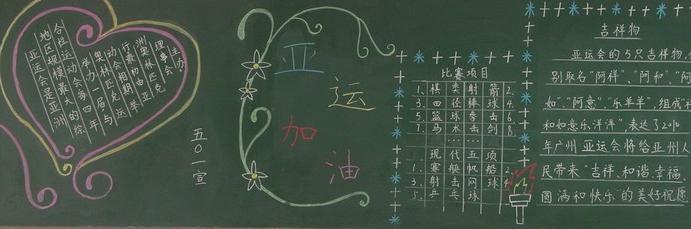 亚运会是亚洲
地区规模最大的综
合性运动会每四年
举办一届与
奥林匹克运
动会相间举
洲奥林匹克
理事会
主办
五〇一宣
亚
运
加
油
比赛项目
1. 棋类 射箭 2.
3. 田径 棒球 4.
5. 篮球 拳击 6
7. 马术 击剑 8
……
现代五项
1. 赛艇 帆船 2
3. 射击 网球
5. 乒乓球
吉祥物
亚运会的5只吉祥物,
别取名“阿祥”、“阿和”、“阿
如”、“阿意”、“乐羊羊”,组成“
和如意乐洋洋”,表达了201
年广州亚运会将给亚洲人
民带来“吉祥、和谐、幸福、
圆满和快乐”的美好祝愿